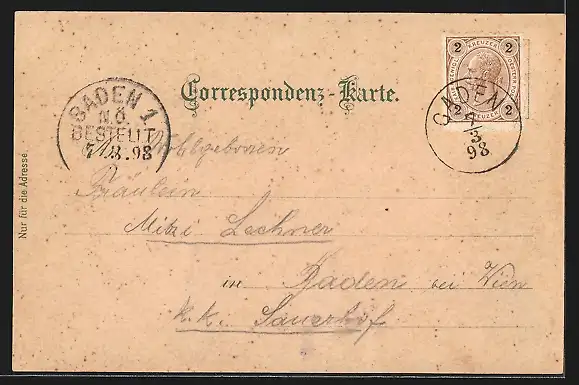 Correspondenz-Karte.
2 KREUZER 2
2 KREUZER 2
GADEN
4
3
98
BADEN 1
N.Ö.
BESTELLT
98
Nur für die Adresse.
Wohlgeboren
Fräulein
Mitzi Lechner
in Baden bei Wien
k.k. Sauerhof